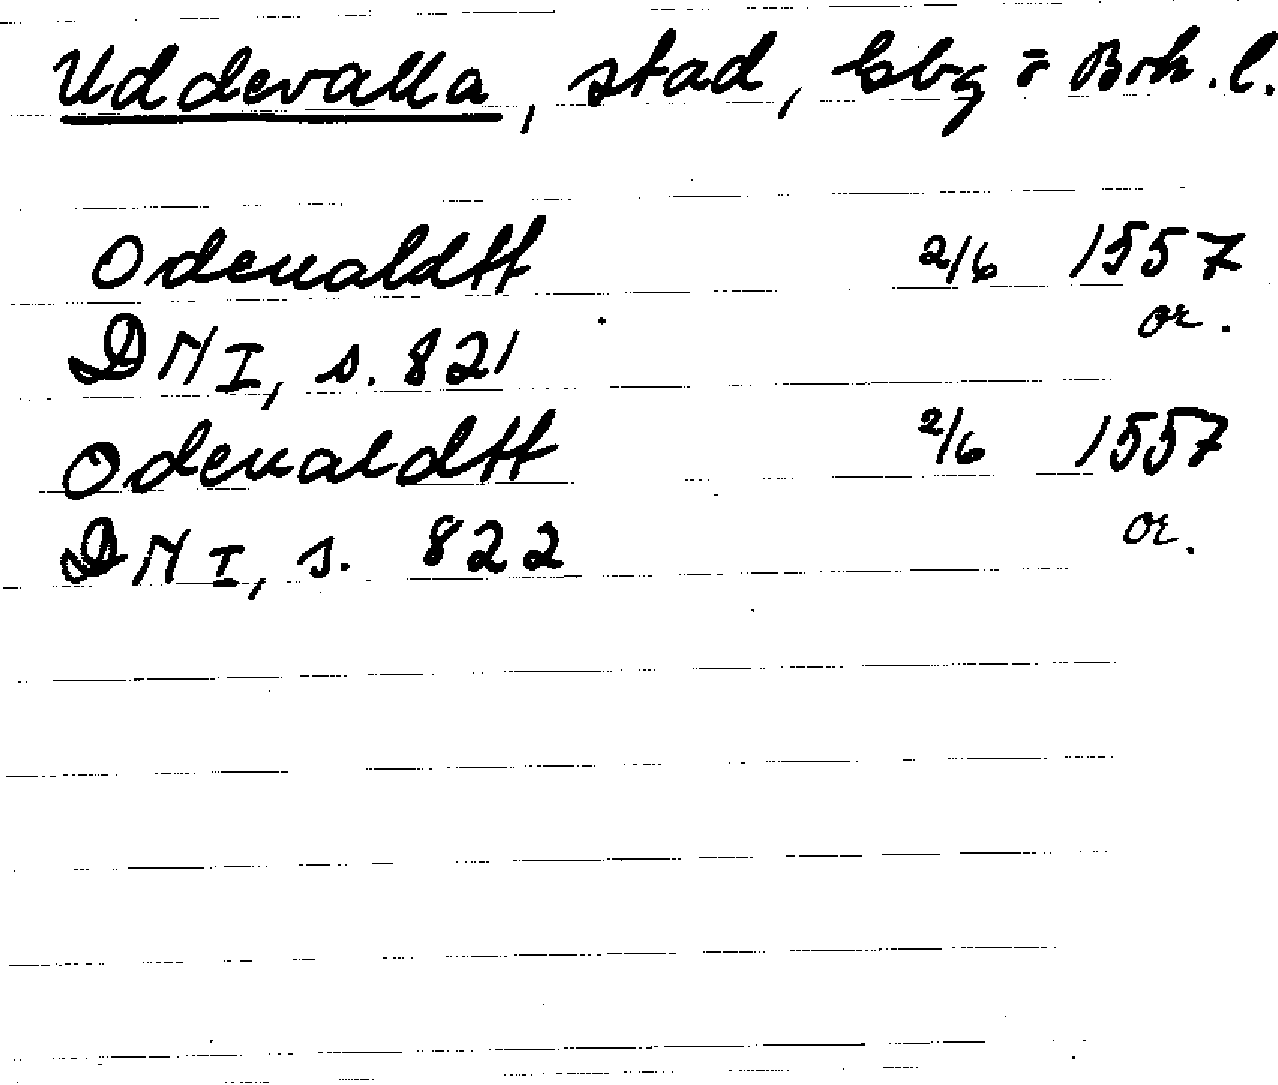 Uddevalla, stad, Gbg o Boh. l.
Odeualdtt 2/6 1557
DN I, s. 821 or.
Odeualdtt 2/6 1557
DN I, s. 822 or.